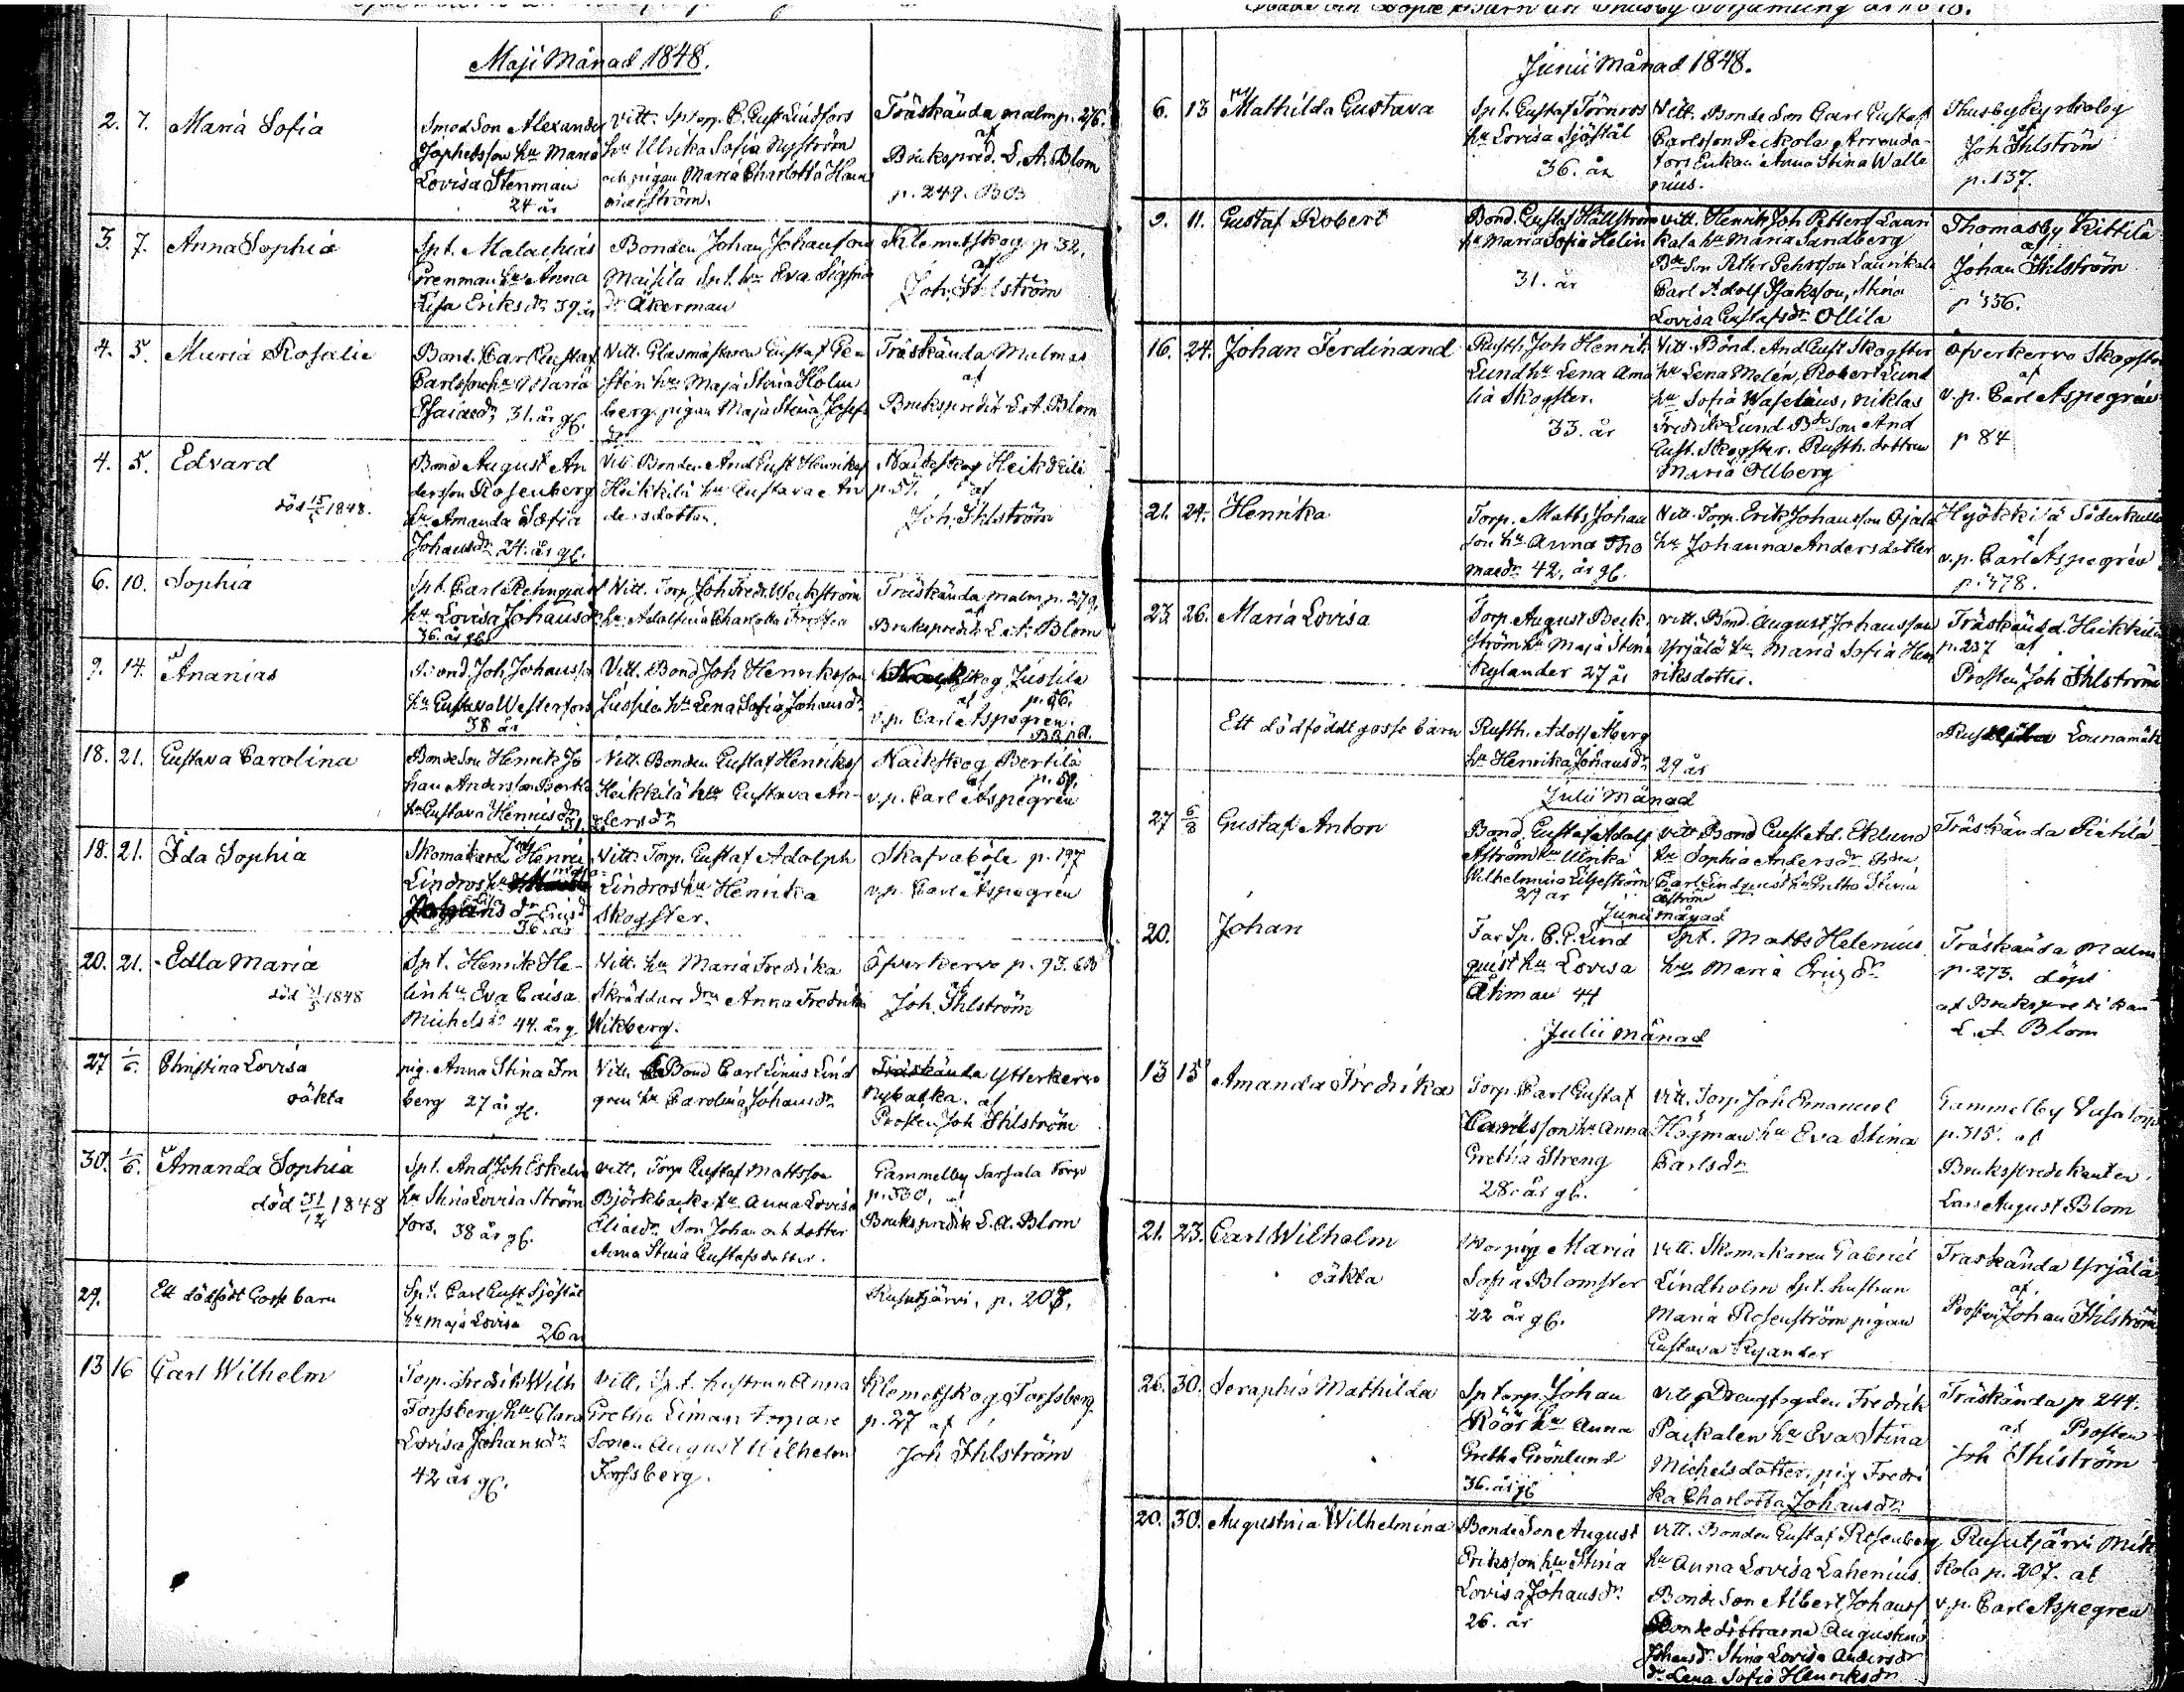 Maji Månad 1848.
2. 7. Maria Sofia
Smed Son Alexander
Japhetsson hu Maria
Lovisa Stenman
24 år
Vitt. Sptorp. C. Gust Lindfors
hu Ulrika Sofia Nyström
och pigan Maria Charlotta Ham
marström.
Träskända malm p. 276.
af
Brukspred. L. A. Blom
p. 249.
3. 7. Anna Sophia
Spt. Malachias
Grenman hu Anna
Lisa Eriks dr 39 år
Bonden Johan Johansson
Maisila Spt. hu Eva
dr Åkerman
Klemetskog p 32.
af
Joh. Ihlström
4. 5. Maria Rosalie
Bond. Carl Gustaf
Carlsson hu Maria
Esaiaedr 31. år gl.
Vitt. Glasmästaren Gustaf
sten hu Maja Stina Holm
berg pigan Maja Stina Josefs
dr
Träskända Malmas
af
Brukspredik L. A. Blom
4. 5. Edvard
död 15/5 1848.
Bond August An
dersson Rosenberg
hu Amanda Sofia
Johansdr 24. år gl.
Vitt. Bonden And Gust Henriks
Heikkilä hu Gustava An
dersdotter.
Naikskog Heikkilä
p. 57. af
Joh. Ihlström
6. 10. Sophia
Spt. Carl
hu Lovisa Johansdr
36. år gl.
Vitt. Torp Joh Fredr. Weckström
hu Adolfina Charlotta
Träskända malm p. 279.
af
Brukspredik L. A. Blom
9. 14. Ananias
Bond. Joh. Johansson
hu Gustava Westerfors
38 år
Vitt. Bond Joh Henriksson
Jussila hu Lena Sofia Johansdr
Naikskog Jussila
af p. 56.
v. p. Carl Aspegren.
18. 21. Gustava Carolina
Bonde Son Henrik Jo
han Andersson
hu Gustava Henricsdr
31
Vitt. Bonden Gustaf Henriks
Heikkilä hu Gustava An-
dersdr
Naikskog Bertila
af p. 59.
v. p. Carl Aspegren
18. 21. Ida Sophia
Skomakare Henric
Lindros hu
dr Ericsd
36. år
Vitt. Torp. Gustaf Adolph
Lindros hu Henrika
Skogster.
Skafvaböle p. 197
af
v. p. Carl Aspegren
20. 21. Edla Maria
död 31/5 1848
Spt. Henrik He-
lin hu Eva Caisa
Michelsdr 44. år g.
Vitt. hu Maria Fredrika
Skräddare dra Anna Fredrika
Wikberg.
Öfverkervo p. 93.
af
Joh. Ihlström
27 1/6. Christina Lovisa
oäkta
pig. Anna Stina Im
berg 27 år gl.
Vitt. Bond Carl Linus Lind
gren hu Carolina Johansdr
Träskända Ytterkervo
Nybacka. af
Prosten Joh Ihlström
30. 1/6. Amanda Sophia
död 31/12 1848
Spt. And Joh Eskelin
hu Stina Lovisa Ström
fors. 38 år gl.
Vitt. Torp Gustaf Mattsson
Björkbacka hu Anna Lovisa
Eliaedr Son Johan och dotter
Anna Stina Gustafsdotter.
Gammelby Sarsala Torp
p. 330. af
Brukspredik L. A. Blom
29. Ett dödfödt Gosse barn
Spt. Carl Gust Sjöstål
hu Maja Lovisa
26 år
Rusutjärvi. p. 208.
13 16 Carl Wilhelm
Torp. Fredrik Wilh
Forssberg hu Clara
Lovisa Johansdr
42 år gl.
Vitt. Spt. hustrun Anna
Gretha Liman torpare
Sonen August Wilhelm
Forssberg.
Klemetskog Forssberg
p. 27 af
Joh Ihlström
Junii Månad 1848.
6. 13 Mathilda Gustava
Spt. Gustaf Törnros
hu Lovisa Sjöstål
36. år
Vitt. Bonde Son Carl Gustaf
Carlsson Peckola Arrenda-
tors Enkan Anna Stina Walle
nius.
Thusby Kyrkoby
af
Joh Ihlström
p. 137.
9. 11. Gustaf Robert
Bond. Gustaf Hällström
hu Maria Sofia Helin
31. år
Vitt. Henrik Joh Petters Lauri
kala hu Maria Sandberg
Bde Son Petter Pehrsson Laurikala
Carl Adolf Isaksson, Stina
Lovisa Gustafsdr Ollila
Thomasby Kittilä
af
Johan Ihlström
p 336.
16. 24. Johan Ferdinand
Rusth. Joh Henrik
Lund hu Lena Ama
lia Skogster.
33. år
Vitt. Bond. And Gust Skogster
hu Lena Melén, Robert Lund
hu Sofia Waselius, Niklas
Fredrik Lund Bde Son And
Gust. Skogster. Rusth. dottren
Maria Ollberg
Öfverkervo Skogster
af
v. p. Carl Aspegrén
p 84
21. 24. Henrika
Torp. Matts Johan
son hu Anna Tho
maedr 42, år gl.
Vitt. Torp. Erik Johansson Ojala
hu Johanna Andersdotter
Hyökkilä Söderkulla
af
v. p. Carl Aspegrén
p. 478.
23. 26. Maria Lovisa
Torp August Beck
ström hu Maja Stina
Nylander 27 år
Vitt. Bond. August Johansson
Yrjälä hu Maria Sofia Hen
riksdotter.
Träskända Heikkilä
p. 237 af
Prosten Joh Ihlström
Ett dödföddt gosse barn
Rusth. Adolf Åberg
hu Henrika Johansdr 29 år
Lounamäk
Julii Månad
27 6/8 Gustaf Anton
Bond. Gustaf Adolf
Åström hu Ulrika
Wilhelmina Liljeström
29 år
Vitt Bond Gust Ad. Eklund
hu Sophia Andersdr
Carl Lindquist hu Gretha Stina
Åström
Träskända Pietilä
Junii månad
20. Johan
Far Sp. C. G. Lind
quist hu Lovisa
Åkman 44
Spt. Matts Helenius
hu Maria Ericsdr
Träskända Malm
p. 273. döpt
af Brukspredikan
L. A. Blom
Julii Månad
13 15 Amanda Fredrika
Torp. Carl Gustaf
Carlsson hu Anna
Gretha Streng
28. år gl.
Vitt. Torp. Joh Emanuel
Högman hu Eva Stina
Carlsdr
Gammelby Uusa torp
p. 315. af
Brukspredikanten
Lars August Blom
21. 23. Carl Wilhelm
oäkta
pig Maria
Sofia Blomster
22 år gl.
Vitt. Skomakaren Gabriel
Lindholm Spt. hustrun
Maria Rosenström pigan
Gustava Nyander
Träskända Yrjälä
af
Prosten Johan Ihlström
26. 30. Seraphia Mathilda
Sp torp. Johan
Röör hu Anna
Gretha Grönlund
36. år gl
Vitt. Drengfogden Fredrik
Paikalen hu Eva Stina
Michelsdotter, pig Fredri
ka Charlotta Johansdr
Träskända p 244.
af Prosten
Joh Ihlström
20. 30. Augustina Wilhelmina
Bonde Son August
Eriksson hu Stina
Lovisa Johansdr
26. år
Vitt. Bonden Gustaf Rosenberg
hu Anna Lovisa Lahenius.
Bonde Son Albert Johans
Bondedöttrarna Augustina
Johansdr Stina Lovisa Anders
dr Lena Sofia Henriksdr
Rusutjärvi Mik
kola p. 207. af
v. p. Carl Aspegren